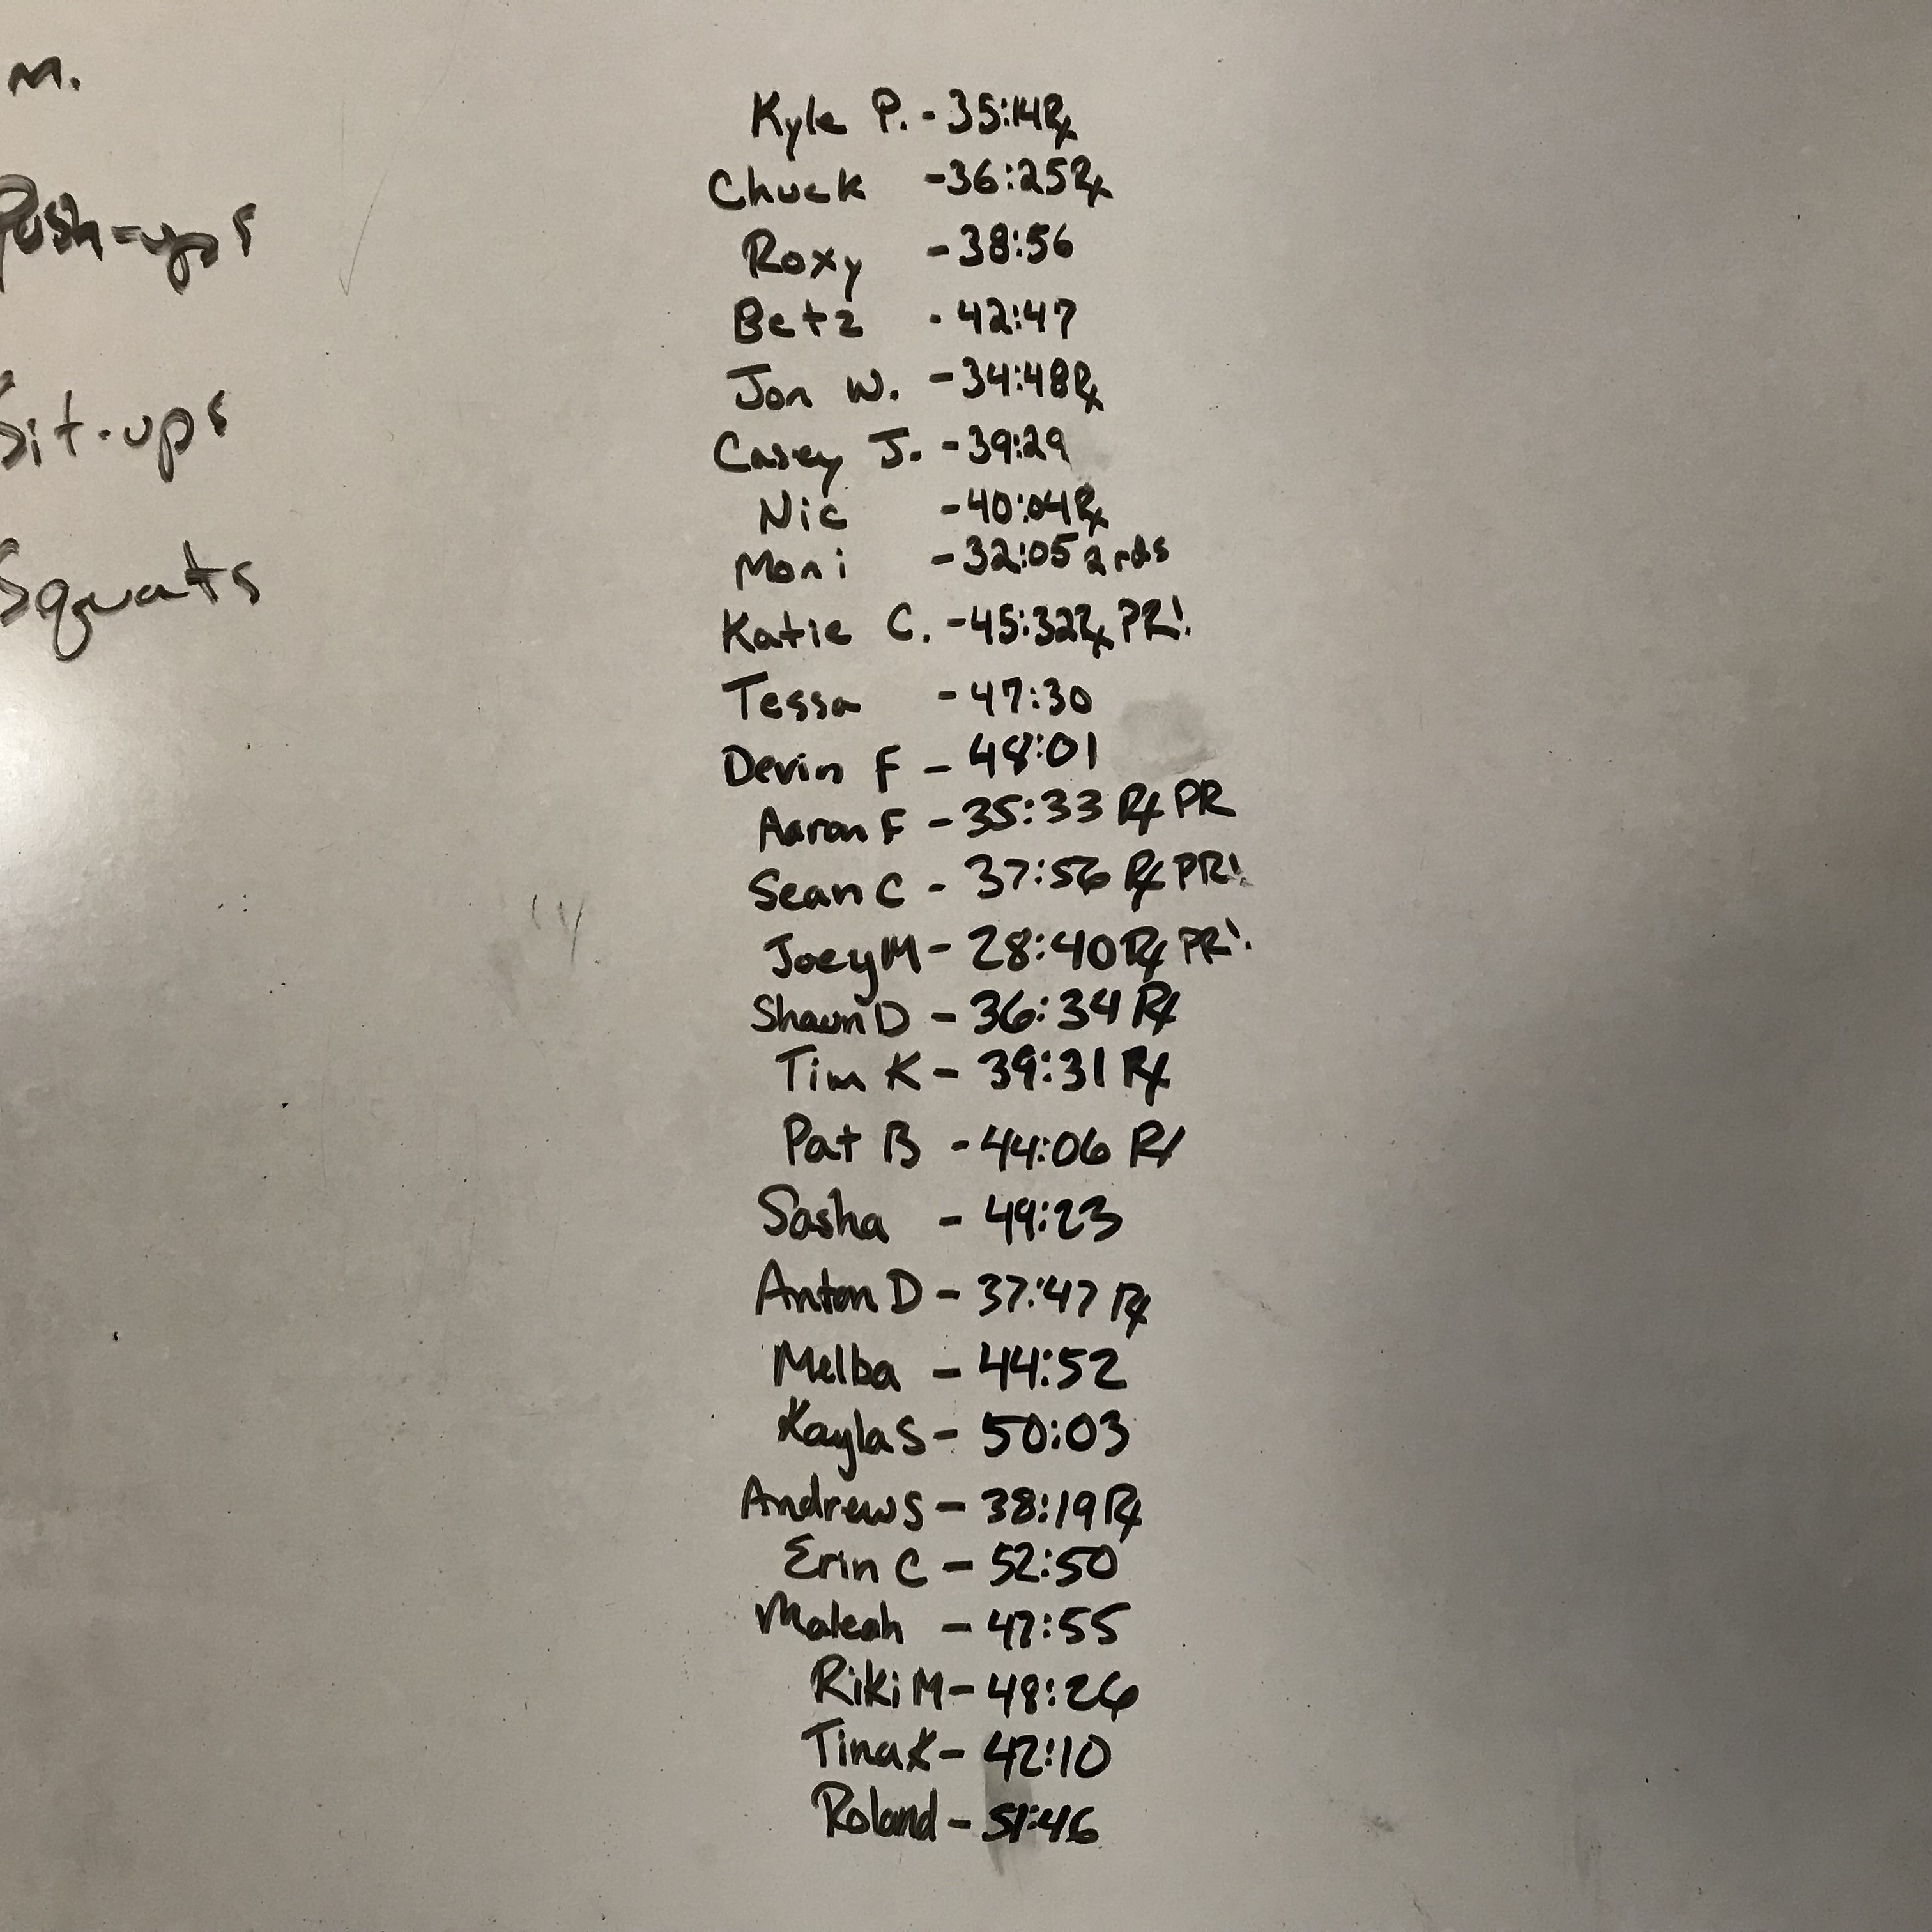 m.
Push-ups
Sit-ups
Squats
Kyle P. - 35:14 Rx
Chuck - 36:25 Rx
Roxy - 38:56
Betz - 42:47
Jon W. - 34:48 Rx
Casey J. - 39:29
Nic - 40:04 Rx
Moni - 32:05 2 rds
Katie C. - 45:32 Rx PR!
Tessa - 47:30
Devin F - 48:01
Aaron F - 35:33 Rx PR
Sean C - 37:56 Rx PR!
Joey M - 28:40 Rx PR!
Shawn D - 36:34 Rx
Tim K - 39:31 Rx
Pat B - 44:06 Rx
Sasha - 49:23
Anton D - 37:47 Rx
Melba - 44:52
Kayla S - 50:03
Andrew S - 38:19 Rx
Erin C - 52:50
Maleah - 47:55
Riki M - 48:26
Tina K - 42:10
Roland - 51:46